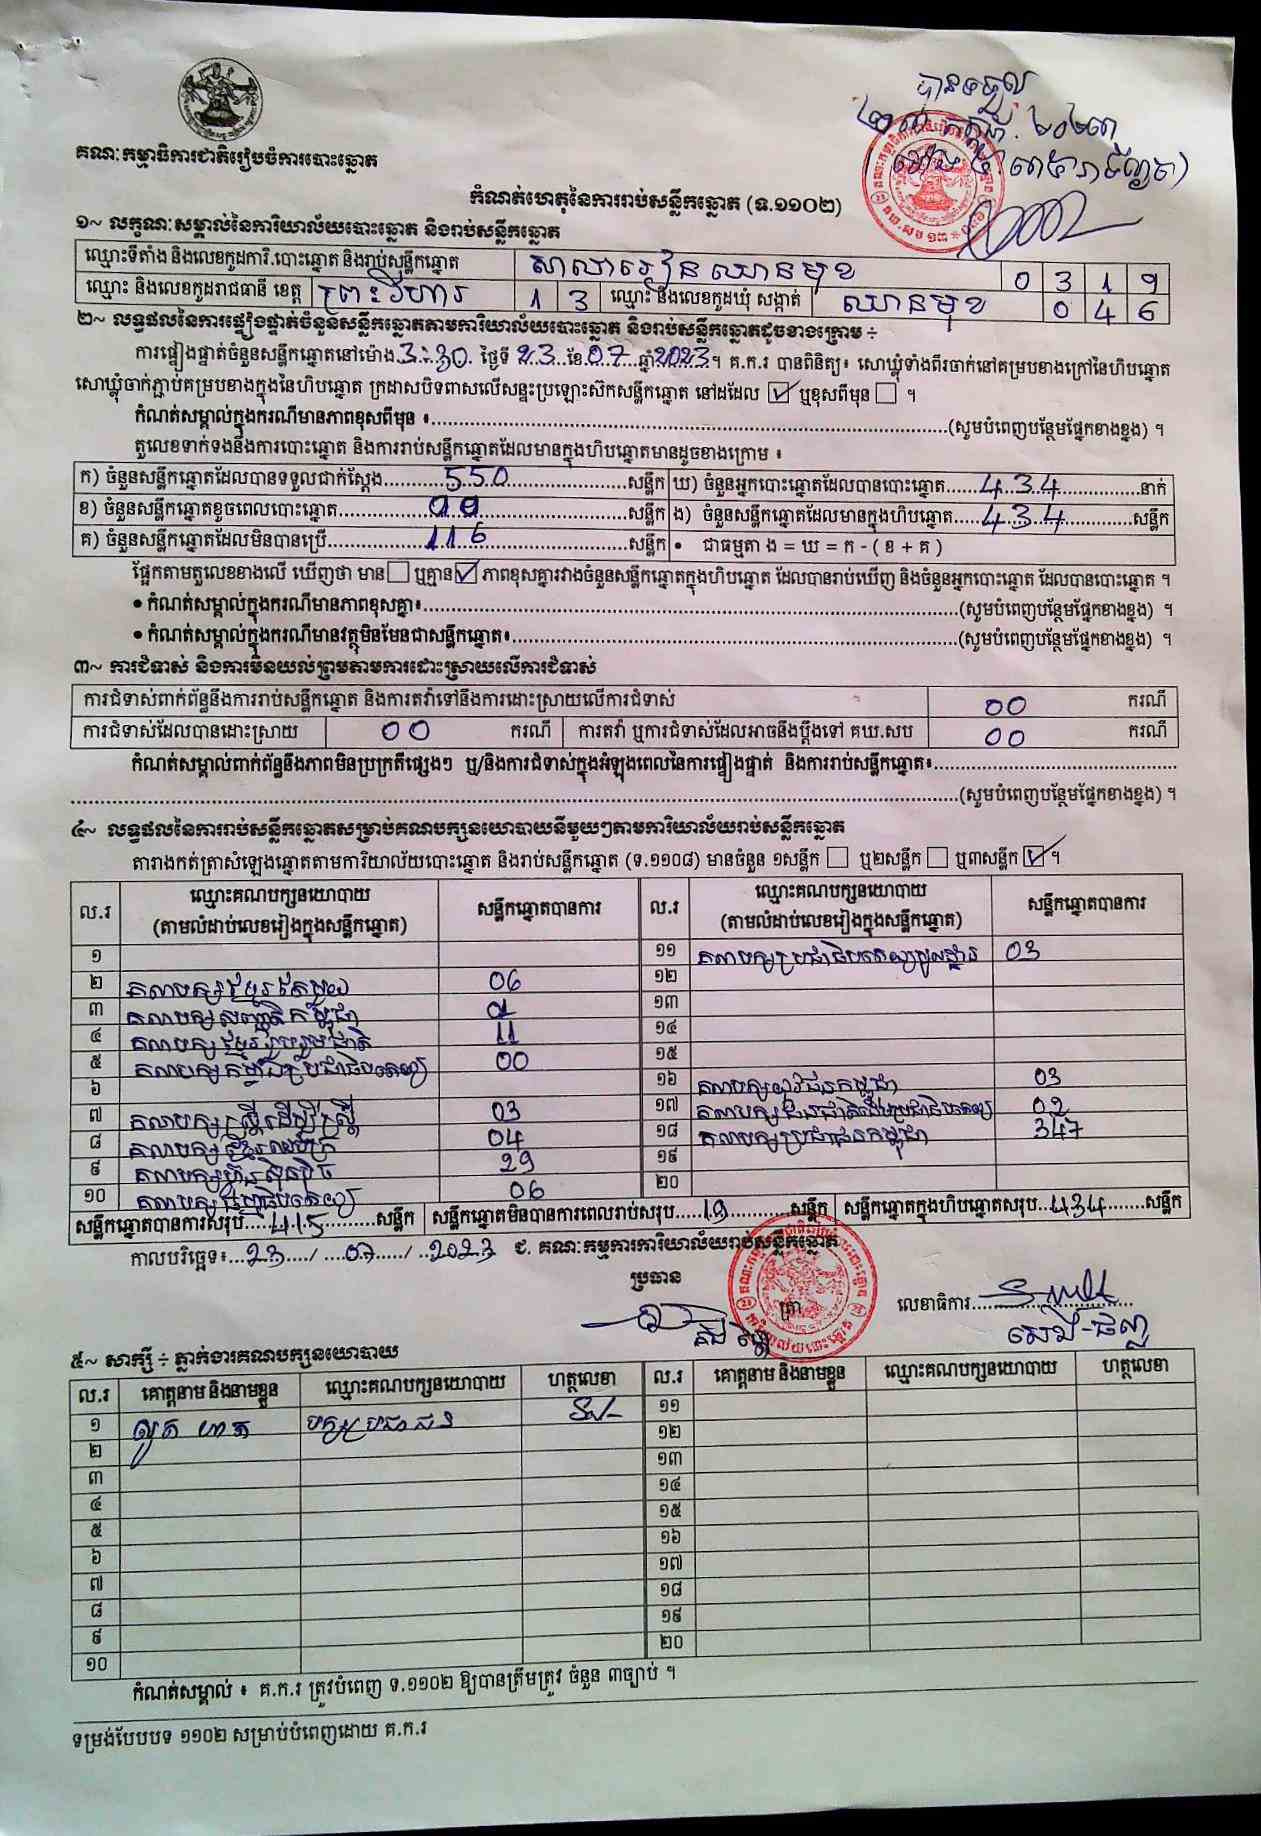 គណៈកម្មាធិការជាតិរៀបចំការបោះឆ្នោត
បានទទួល
កំណត់ហេតុនៃការរាប់សន្លឹកឆ្នោត (ទ.១១០២)
១~ លក្ខណៈសម្គាល់នៃការិយាល័យបោះឆ្នោត និងរាប់សន្លឹកឆ្នោត
ឈ្មោះទីតាំង និងលេខកូដការិ.បោះឆ្នោត និងរាប់សន្លឹកឆ្នោត សាលារៀន ឈានមុខ 0 3 1 9
ឈ្មោះ និងលេខកូដរាជធានី ខេត្ត ព្រះវិហារ 1 3 ឈ្មោះ និងលេខកូដឃុំ សង្កាត់ ឈានមុខ 0 4 6
២~ លទ្ធផលនៃការផ្ទៀងផ្ទាត់ចំនួនសន្លឹកឆ្នោតតាមការិយាល័យបោះឆ្នោត និងរាប់សន្លឹកឆ្នោតដូចខាងក្រោម ÷
ការផ្ទៀងផ្ទាត់ចំនួនសន្លឹកឆ្នោតនៅម៉ោង 3:30 ថ្ងៃទី 23 ខែ 07 ឆ្នាំ 2023។ គ.ក.រ បានពិនិត្យ៖ សោឃ្លុំទាំងពីរចាក់នៅគម្របខាងក្រៅនៃហិបឆ្នោត
សោឃ្លុំចាក់ភ្ជាប់គម្របខាងក្នុងនៃហិបឆ្នោត ក្រដាសបិទពាសលើសន្ទះប្រឡោះស៊កសន្លឹកឆ្នោត នៅដដែល ☑ ឬខុសពីមុន ☐ ។
កំណត់សម្គាល់ក្នុងករណីមានភាពខុសពីមុន ៖..........(សូមបំពេញបន្ថែមផ្នែកខាងខ្នង) ។
តួលេខទាក់ទងនឹងការបោះឆ្នោត និងការរាប់សន្លឹកឆ្នោតដែលមានក្នុងហិបឆ្នោតមានដូចខាងក្រោម ៖
ក) ចំនួនសន្លឹកឆ្នោតដែលបានទទួលជាក់ស្ដែង 550 សន្លឹក ឃ) ចំនួនអ្នកបោះឆ្នោតដែលបានបោះឆ្នោត 434 នាក់
ខ) ចំនួនសន្លឹកឆ្នោតខូចពេលបោះឆ្នោត 00 សន្លឹក ង) ចំនួនសន្លឹកឆ្នោតដែលមានក្នុងហិបឆ្នោត 434 សន្លឹក
គ) ចំនួនសន្លឹកឆ្នោតដែលមិនបានប្រើ 116 សន្លឹក • ជាធម្មតា ង = ឃ = ក - ( ខ + គ )
ផ្អែកតាមតួលេខខាងលើ ឃើញថា មាន ☐ ឬគ្មាន ☑ ភាពខុសគ្នារវាងចំនួនសន្លឹកឆ្នោតក្នុងហិបឆ្នោត ដែលបានរាប់ឃើញ និងចំនួនអ្នកបោះឆ្នោត ដែលបានបោះឆ្នោត ។
• កំណត់សម្គាល់ក្នុងករណីមានភាពខុសគ្នា៖..........(សូមបំពេញបន្ថែមផ្នែកខាងខ្នង) ។
• កំណត់សម្គាល់ក្នុងករណីមានវត្ថុមិនមែនជាសន្លឹកឆ្នោត៖..........(សូមបំពេញបន្ថែមផ្នែកខាងខ្នង) ។
៣~ ការជំទាស់ និងការមិនយល់ព្រមតាមការដោះស្រាយលើការជំទាស់
ការជំទាស់ពាក់ព័ន្ធនឹងការរាប់សន្លឹកឆ្នោត និងការតវ៉ាទៅនឹងការដោះស្រាយលើការជំទាស់ 00 ករណី
ការជំទាស់ដែលបានដោះស្រាយ 00 ករណី ការតវ៉ា ឬការជំទាស់ដែលអាចនឹងប្ដឹងទៅ គឃ.សប 00 ករណី
កំណត់សម្គាល់ពាក់ព័ន្ធនឹងភាពមិនប្រក្រតីផ្សេងៗ ឬ/និងការជំទាស់ក្នុងអំឡុងពេលនៃការផ្ទៀងផ្ទាត់ និងការរាប់សន្លឹកឆ្នោត៖..........
..........(សូមបំពេញបន្ថែមផ្នែកខាងខ្នង) ។
៤~ លទ្ធផលនៃការរាប់សន្លឹកឆ្នោតសម្រាប់គណបក្សនយោបាយនីមួយៗតាមការិយាល័យរាប់សន្លឹកឆ្នោត
តារាងកត់ត្រាសំឡេងឆ្នោតតាមការិយាល័យបោះឆ្នោត និងរាប់សន្លឹកឆ្នោត (ទ.១១០៨) មានចំនួន ១សន្លឹក ☐ ឬ២សន្លឹក ☐ ឬ៣សន្លឹក ☑ ។
ល.រ ឈ្មោះគណបក្សនយោបាយ (តាមលំដាប់លេខរៀងក្នុងសន្លឹកឆ្នោត) សន្លឹកឆ្នោតបានការ ល.រ ឈ្មោះគណបក្សនយោបាយ (តាមលំដាប់លេខរៀងក្នុងសន្លឹកឆ្នោត) សន្លឹកឆ្នោតបានការ
១ ១១ គណបក្សប្រជាធិបតេយ្យមូលដ្ឋាន 03
២ គណបក្សខ្មែរតែមួយ 06 ១២
៣ គណបក្សសញ្ជាតិកម្ពុជា ១៣
៤ គណបក្សខ្មែររួបរួមជាតិ 11 ១៤
៥ គណបក្សកម្លាំងប្រជាធិបតេយ្យ 00 ១៥
៦ ១៦ គណបក្សយុវជនកម្ពុជា 03
៧ គណបក្សស្ត្រីដើម្បីស្ត្រី 03 ១៧ គណបក្សជំនរជាតិដើម្បីប្រជាធិបតេយ្យ 02
៨ គណបក្ស 04 ១៨ គណបក្សប្រជាជនកម្ពុជា 347
៩ គណបក្សហ៊្វុនស៊ិនប៉ិច 29 ១៩
១០ គណបក្ស 06 ២០
សន្លឹកឆ្នោតបានការសរុប 415 សន្លឹក សន្លឹកឆ្នោតមិនបានការពេលរាប់សរុប 19 សន្លឹក សន្លឹកឆ្នោតក្នុងហិបឆ្នោតសរុប 434 សន្លឹក
កាលបរិច្ឆេទ៖ 23 / 07 / 2023 ជ. គណៈកម្មការការិយាល័យរាប់សន្លឹកឆ្នោត
ប្រធាន
ត្រា លេខាធិការ
៥~ សាក្សី ÷ ភ្នាក់ងារគណបក្សនយោបាយ
ល.រ គោត្តនាម និងនាមខ្លួន ឈ្មោះគណបក្សនយោបាយ ហត្ថលេខា ល.រ គោត្តនាម និងនាមខ្លួន ឈ្មោះគណបក្សនយោបាយ ហត្ថលេខា
១ បក្សប្រជាជន ១១
២ ១២
៣ ១៣
៤ ១៤
៥ ១៥
៦ ១៦
៧ ១៧
៨ ១៨
៩ ១៩
១០ ២០
កំណត់សម្គាល់ ៖ គ.ក.រ ត្រូវបំពេញ ទ.១១០២ ឱ្យបានត្រឹមត្រូវ ចំនួន ៣ច្បាប់ ។
ទម្រង់បែបបទ ១១០២ សម្រាប់បំពេញដោយ គ.ក.រ